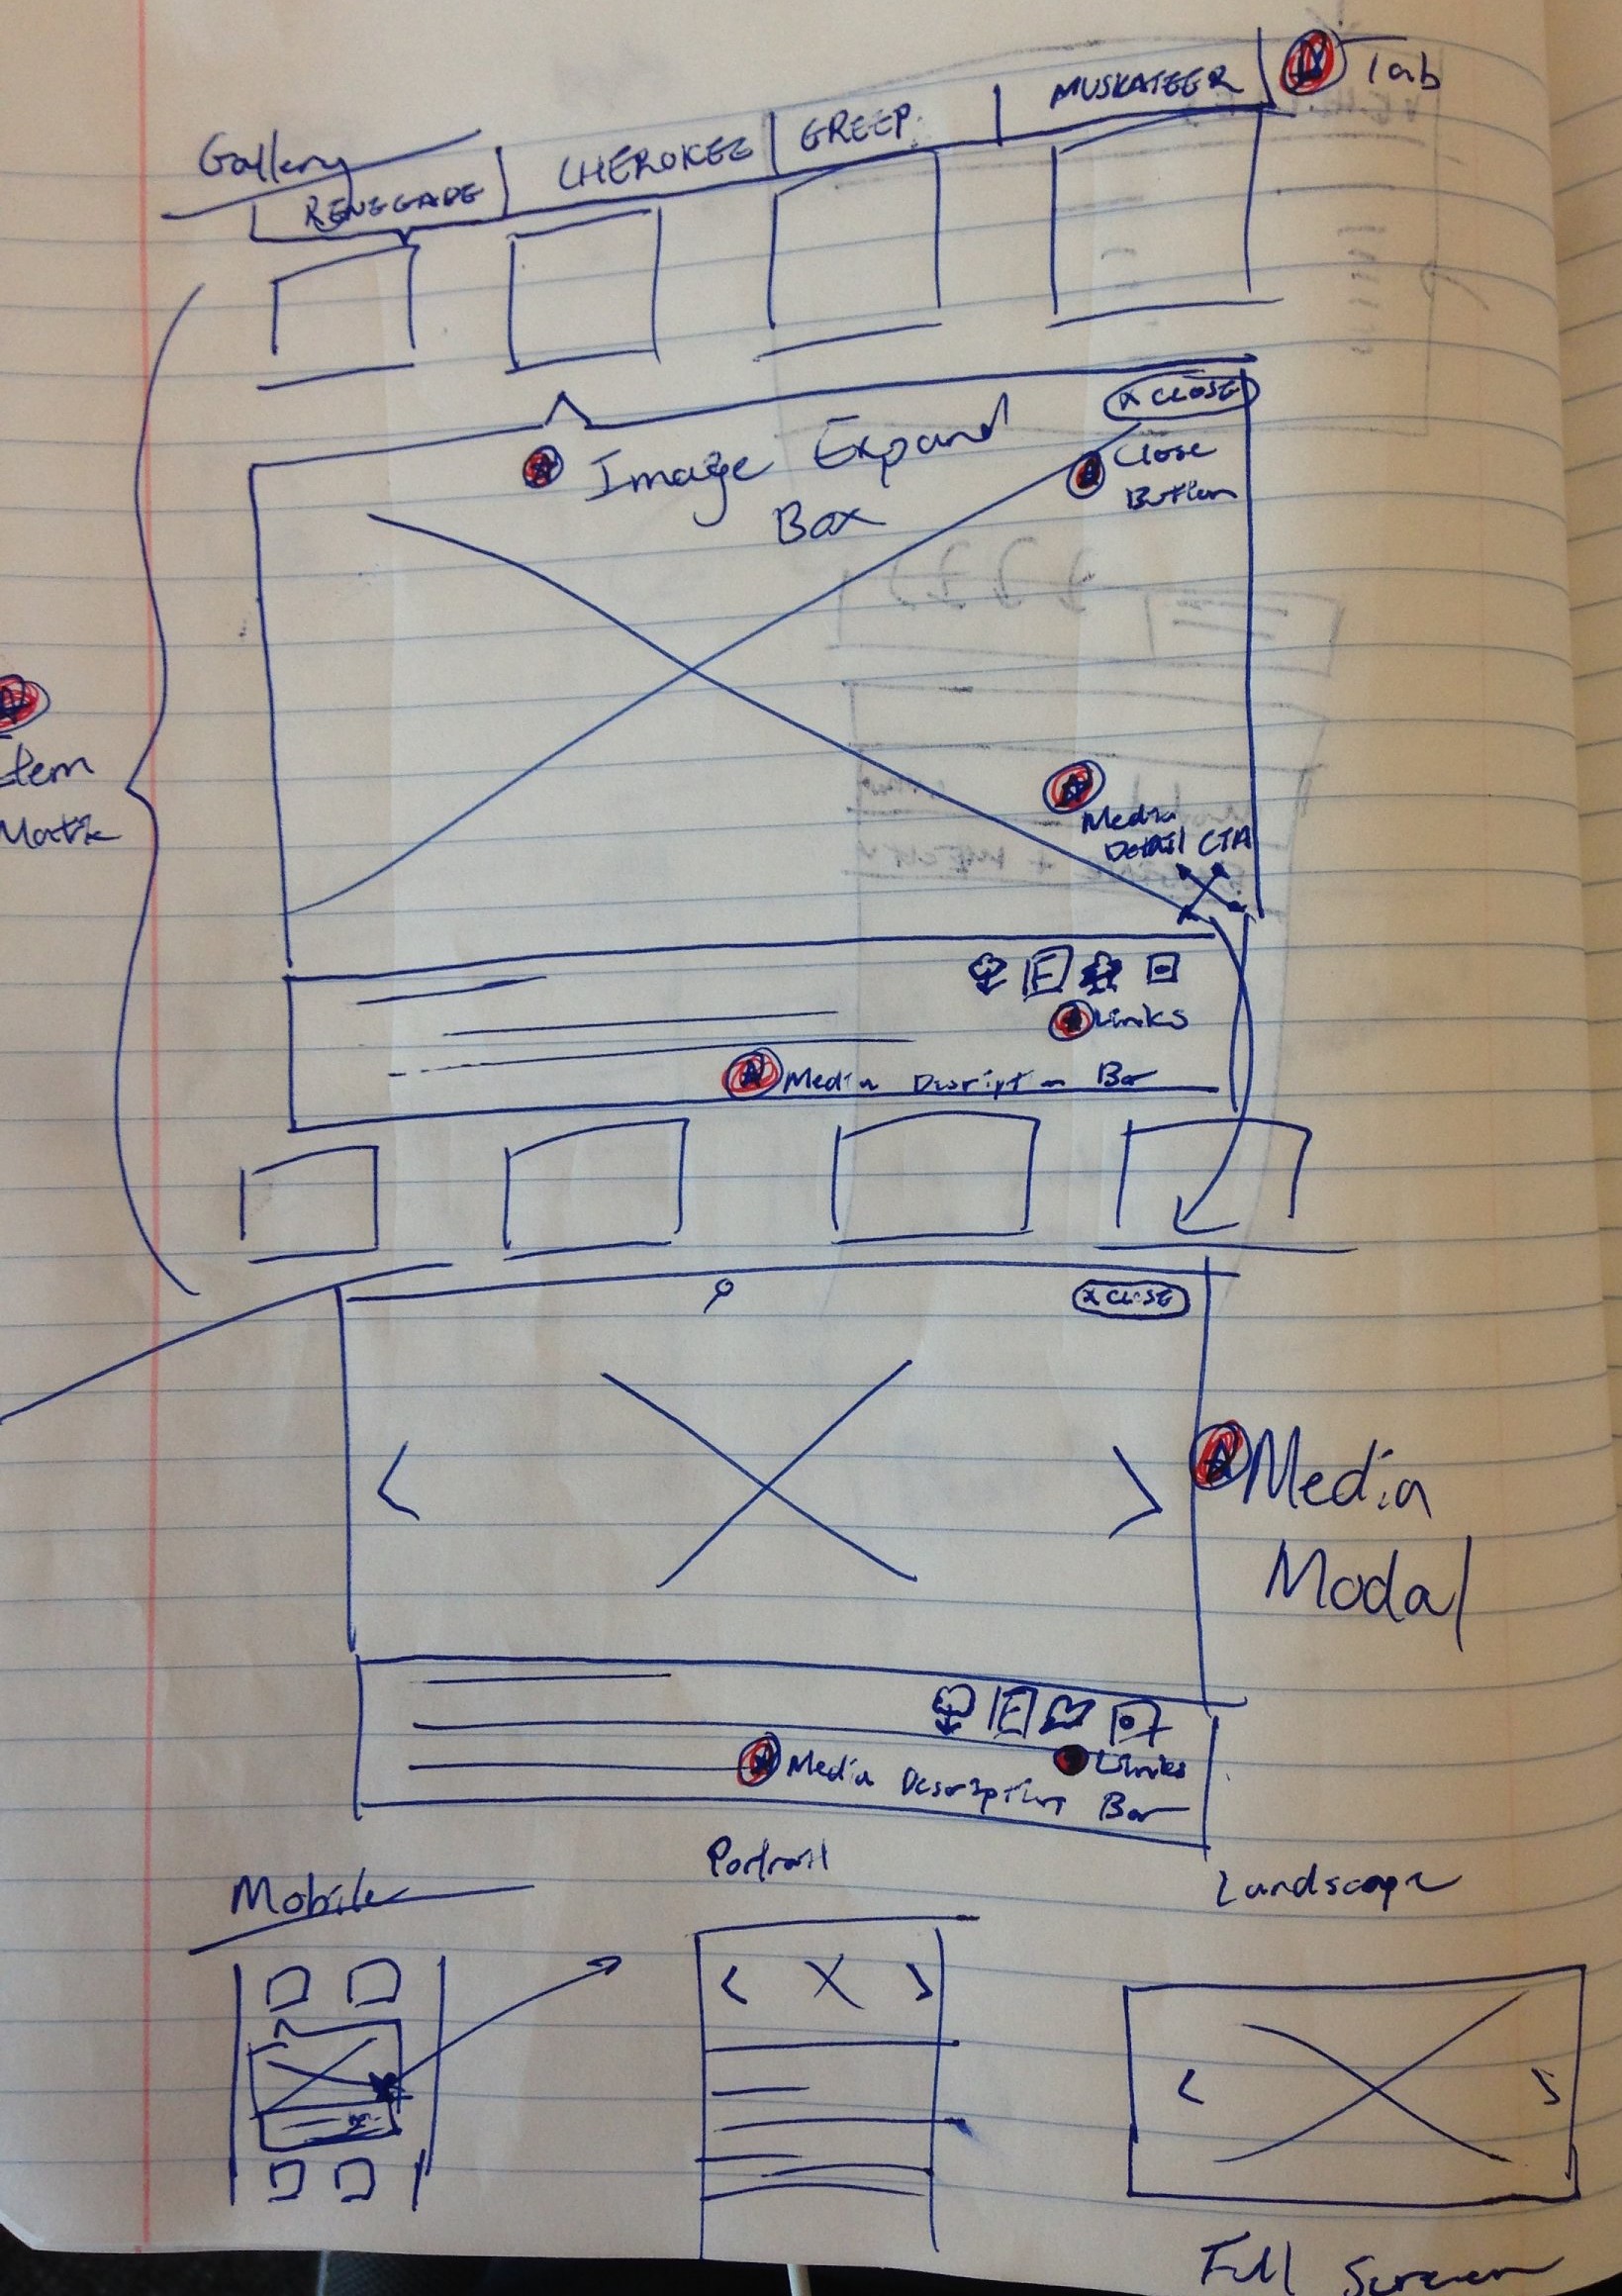 Tab
Gallery
RENEGADE
CHEROKEE
GREEP
MUSKATEER
X CLOSE
Image Expand
Box
Close
Button
Item
Matrix
Media
Detail CTA
F
Links
Media Descript Bar
X CLOSE
Media
Modal
F
Links
Media Description Bar
Mobile
Portrait
Landscape
Full Screen